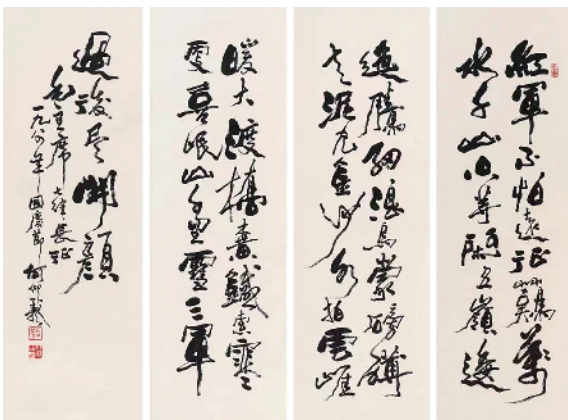 紅軍不怕遠征難萬
水千山只等閑五嶺逶
迤騰細浪烏蒙磅礴
走泥丸金沙水拍雲崖
暖大渡橋橫鐵索寒
更喜岷山千里雪三軍
過後尽開顔
毛主席七律長征
一九八年國慶節何仰羲